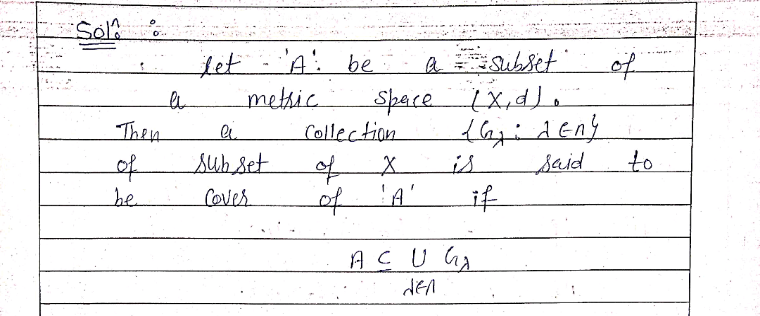 Solⁿ :
let 'A' be a subset of
a metric space (X,d).
Then a collection {Gλ : λ ∈ Λ}
of subset of X is said to
be cover of 'A' if
A ⊆ ∪ Gλ
λ∈Λ